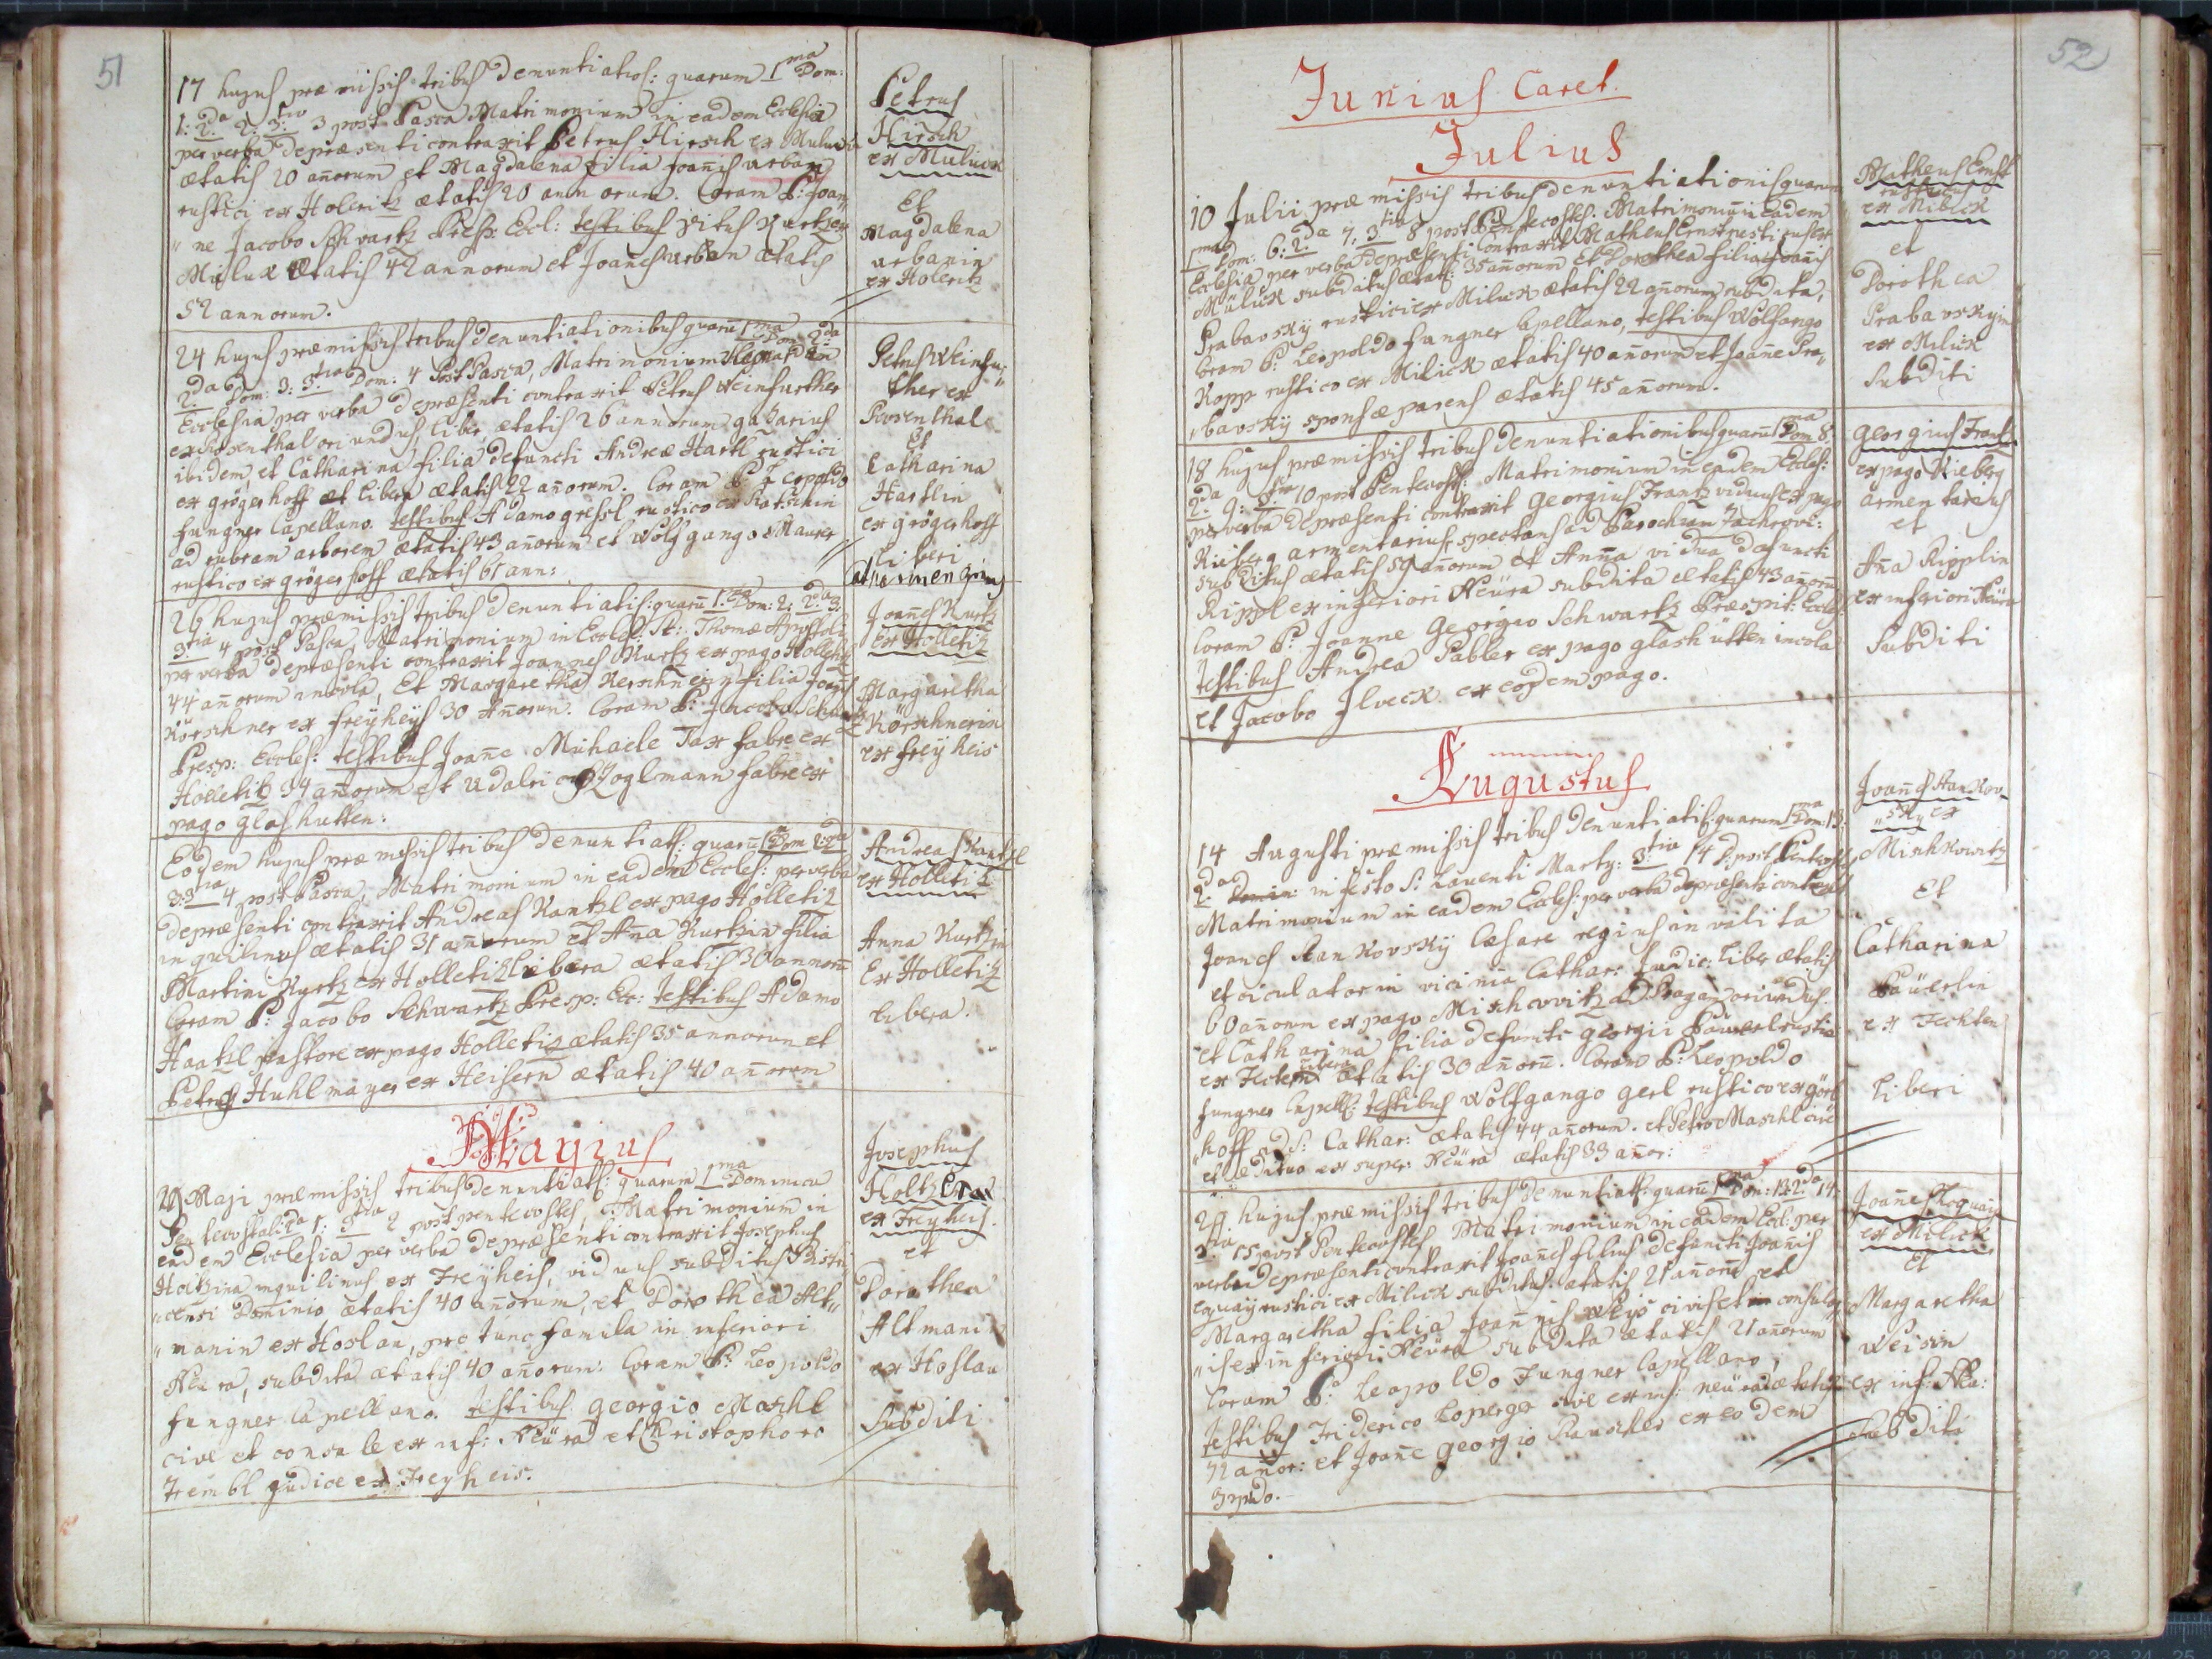 51
17 hujus præmissis tribus denuntiatios: quarum 1ma Dom:
1: 2da 2. 3:tio 3 post Pasca Matrimonium in eadem Ecclesia
per verba depræsenti contraxit Petrus Hirsch ex Muluck
ætatis 20 añorum et Magdalena filia Joañis urban
rustici ex Holeritz ætatis 20 annorum. Coram P: Joan„
„ne Jacobo Schwartz Presp: Eccl: testibus Vitus Kurtz ex
Miluck Ætatis 42 annorum et Joanes urban ætatis
52 annorum.
Petrus
Hirsch
ex Muluck
Et
Magdalena
urbanin
ex Holeritz
24 hujus præmissis tribus denuntiationibus quarū 1ma Dom: 2da
2da Dom: 3: 3:tia Dom: 4 Post Pasca, Matrimonium
Ecclesia per verba depræsenti contraxit Petrus Weinfurther
ex Rosenthal oriundus, liber ætatis 26 annorum
ibidem, et Catharina filia defuncti Andreæ Hartl rustici
ex grögerhoff et libera ætatis 22 añorum. Coram P: Leopoldo
fungner Capellano. testibus Adamo gressl rustico ex
ad rubram arborem ætatis 43 añorum et Wolfgango Maurer
rustico ex grögerhoff ætatis 61 ann:
Petrus Weinfur„
ther ex
Rosenthal
Et
Catharina
Hartlin
ex grögerhoff
Liberi
26 hujus præmissis tribus denuntiatis: quarū 1:ma Dom: 2: 2:da 3:
3tia 4 post Pasca, Matrimonium in Eccles: St: Thomæ Apostoli
per verba depræsenti contraxit Joannes Kurtz ex pago Holletitz
44 añorum incola, Et Margaretha Kerschnerin filia Joañis
Körschner ex freyheys 30 Añorum. Coram P: Jacobo Schwartz
Presp: Eccles: testibus Joañe Michaele Tax fabre ex
Holletitz 34 añorum et Udalrico Zoglmann fabre ex
pago glashutten:
Joañes Kurtz
ex Holletitz
Margaretha
Körschnerin
ex freyheis
Eodem hujus præmissis tribus denuntiats: quarū 1ma Dom 2: 2da
3: 3tia 4 post Pasca, Matrimonium in eadem Eccles: per verba
depræsenti contraxit Andreas Kantzl ex pago Holletitz
inquilinus ætatis 31 añorum et Aña Kurtzin filia
Martini Kurtz ex Holletitz libera ætatis 30 annorū
Coram P: Jacobo Schwartz Presp: Ecc: testibus Adamo
Haatzl pastore ex pago Holletitz ætatis 35 annorum et
Petrus Huhlmayer ex Heisern ætatis 40 añorum
Andreas Kantzl
ex Holletitz
Anna Kurtzin
Ex Holletitz
libera.
Mayius
29 Maji præmissis tribus denuntiats: quarum 1ma Dominica
Pentecostali 2da 1: 3tia 2 post pentecostes, Matrimonium in
eadem Ecclesia per verba depræsenti contraxit Josephus
Holtzina inquilinus ex Freyheis, viduus subditus Bistri„
„censi Dominio ætatis 40 añorum, et Dorothea Alt„
„manin ex Hoslau, pro tunc famula in inferiori
Neura, subdita ætatis 40 añorum: Coram P: Leopoldo
fungner Capellano. testibus georgio Maschl
cive et consule ex inf: Neüra et Christophoro
Trembl judice ex Freyheis.
Josephus
Holtz
ex Freyheis.
et
Dorothea
Altmanin
ex Hoslau
Subditi
52
Junius Caret.
Julius
10 Julii præmissis tribus denuntiationis quarum
1ma Dom: 6: 2da 7: 3tia 8 post Pentecostes. Matrimoniū in Eadem
Ecclesia per verba depræsenti contraxit Matheus Ernst rusticus ex
Mülick subditus ætatis: 35 añorum Et Dorothea filia Joañis
Prabavsky rustici ex Miluck ætatis 22 añorum subdita,
Coram P: Leopoldo fungner Capellano, testibus Wolfango
Kopp rustico ex Milick ætatis 40 añorum et Joañe Pra„
„bavsky sponsæ parens ætatis 45 añorum.
Matheus Ernst
rusticus
ex Milick
et
Dorothea
Prabavskyin
ex Milick
Subditi
18 hujus præmissis tribus denuntiationibus quarū 1ma Dom 8:
2da 9: 3tia 10 post Pentecosts: Matrimonium in eadem Eccles:
per verba depræsenti contraxit Georgius Frantz viduus ex pago
Rieberg armentarius spectans ad Parochiam
subditus ætatis 59 añorum et Anña vidua defuncti
Rippl ex inferiori Neüra subdita ætatis 43 añorū
Coram P: Joanne Georgio Schwartz Præspit: Eccles
testibus Andrea Pabler ex pago glashütten incola
et Jacobo Ilveck ex eodem pago.
Georgius Frantz
ex pago Rieberg
armentareus
et
Aña Ripplin
ex inferiori Neüra
Subditi
Augustus
14 Augusti præmissis tribus denuntiatis: quarum 1ma Dom: 13:
2da Domin: in festo S: Laurenti Marty: 3:tia 14 D: post Pentecost:
Matrimonium in eadem Eccles: per verba depræsenti contraxit
Joanes Stankovsky Cæsare regius invalita
et oiculator in vicinia Cathar: Judic: liber ætatis
60 añorum ex pago Mischcovitz ad Pragam oriundus.
et Catharina filia defuncti Georgii Paüerl rustici
ex Fecten libera ætatis 30 añorū. Coram P: Leopoldo
fungner Capell: testibus Wolfgango gerl rustico ex görl
„hoff ad S: Cathar: ætatis 44 añorum. et Petro Maschl cive
et ædituo ex super: Neüra ætatis 33 añor:
Joanes Stankov„
„sky ex
Mischkowitz
Et
Catharina
Paüerlin
ex Fechten
Liberi
27. hujus præmissis tribus denuntiats: quarū 1ma Dom: 13: 2da 14:
3tia 15 post Pentecostes Matrimonium in eadem Eccl: per
verba depræsenti contraxit Joañes filius defuncti Joañis
Equay rustici ex Milick subditus: ætatis 21 añorū et
Margaretha filia Joannis Weys civis et consula„
„is ex inferiori Neüra subdita ætatis 21 añorum
Coram P: Leopoldo Fungner Capellano,
testibus Friderico Loperger cive ex inf: neüra ætatis
72 añor: et Joañe georgio Rauscher ex eodem
Joañes Equay
ex Milick
Et
Margaretha
Weisin
ex inf: Nea:
Subditi